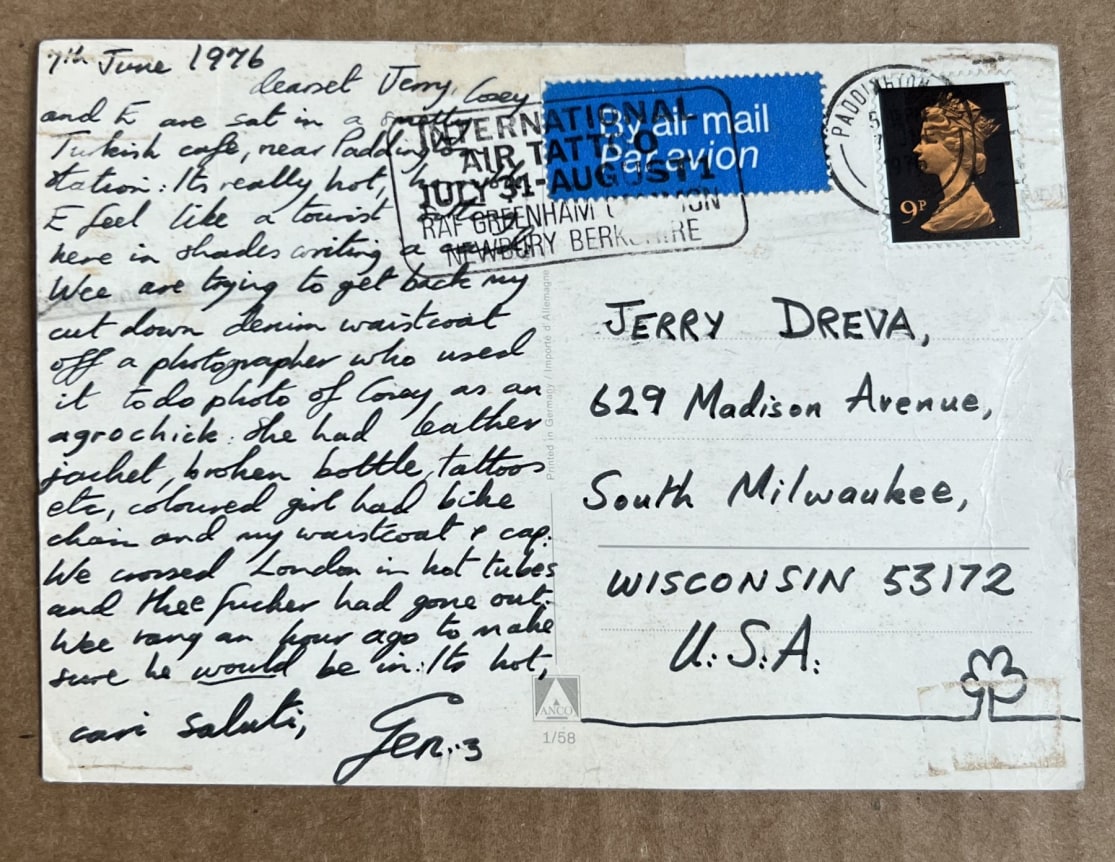 7th June 1976
dearest Jerry, Cosey
and E are sat in a
Turkish cafe, near Paddington
station: Its really hot,
E feel like a tourist
here in shades writing a
Wee are trying to get back my
cut down denim waistcoat
off a photographer who used
it to do photo of Cosey as an
agrochick. She had leather
jacket, broken bottle, tattoos
etc, coloured girl had bike
chain and my waistcoat & cap.
We crossed London in hot tubes
and thee fucker had gone out.
Wee rang an hour ago to make
sure he would be in. Its hot,
cari saluti,
Gen..3
INTERNATIONAL
AIR TATTOO
JULY 31-AUGUST 1
RAF GREENHAM COMMON
NEWBURY BERKSHIRE
By air mail
Par avion
PADDINGTON
9P
Printed in Germany / Importé d'Allemagne
JERRY DREVA,
629 Madison Avenue,
South Milwaukee,
WISCONSIN 53172
U.S.A.
ANCO
1/58